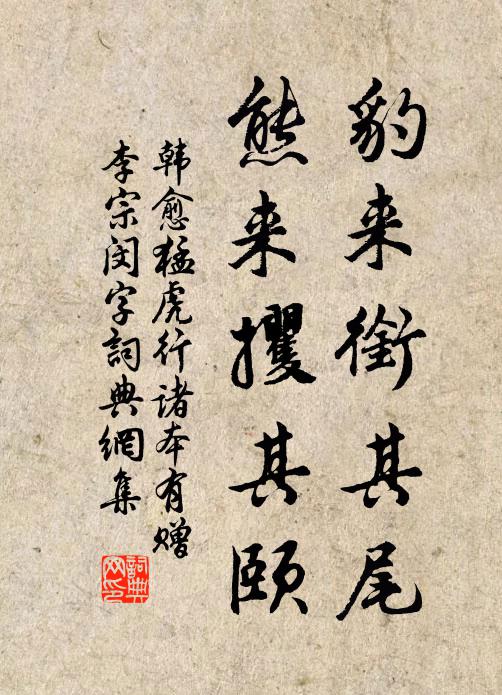 豹来銜其尾
熊来攫其颐
韩愈猛虎行诸本有赠
李宗闵字詞典網集
詞典
网印